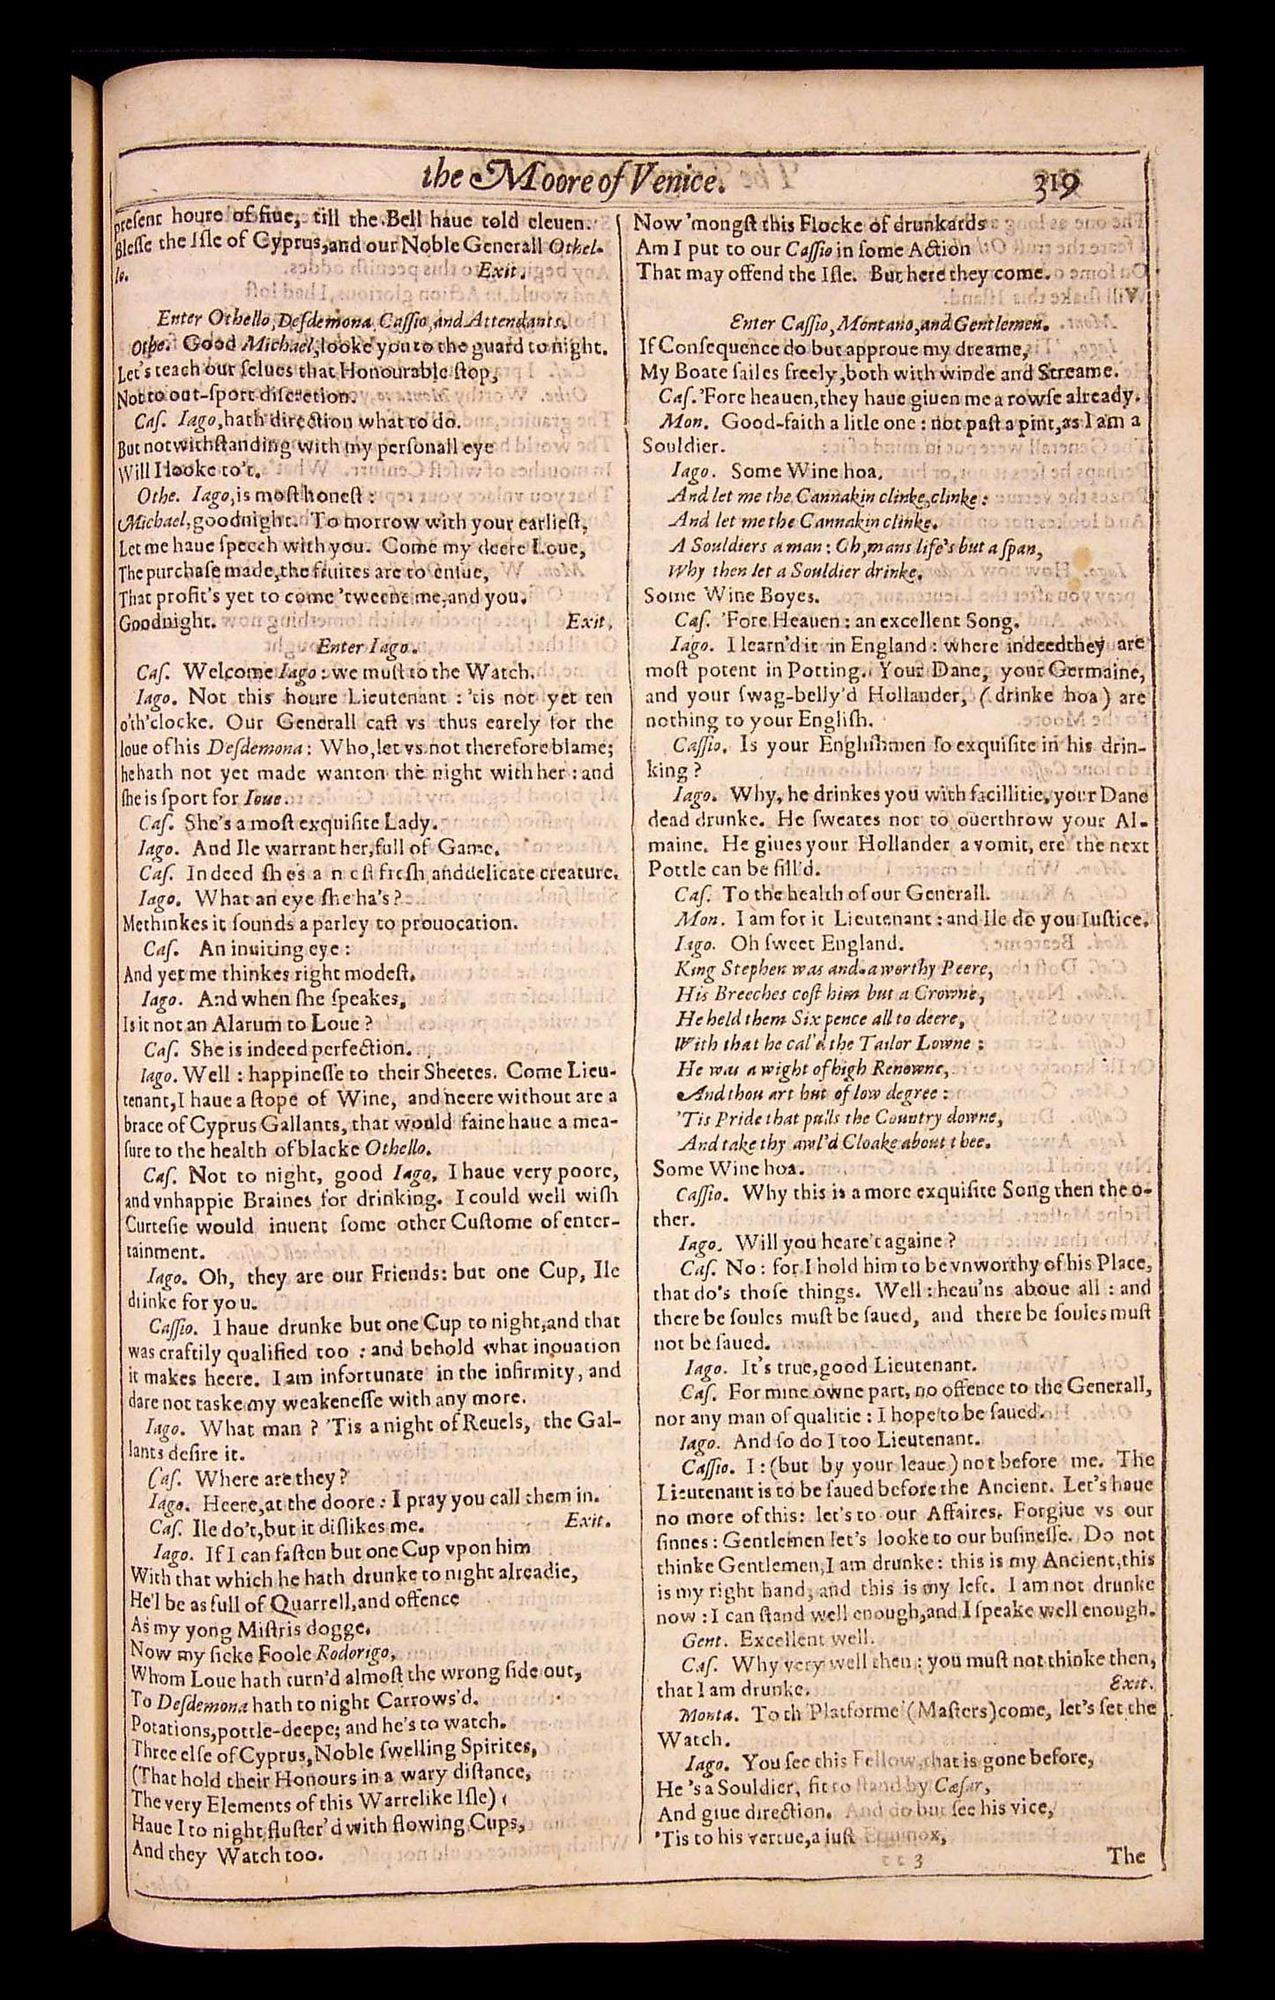 the Moore of Venice. 319
present houre of fiue, till the Bell haue told eleuen.
Blesse the Isle of Cyprus, and our Noble Generall Othel-
lo. Exit.
Enter Othello, Desdemona, Cassio, and Attendants.
Othe. Good Michael, looke you to the guard to night.
Let's teach our selues that Honourable stop,
Not to out-sport discretion.
Cas. Iago, hath direction what to do.
But notwithstanding with my personall eye
Will I looke to't.
Othe. Iago, is most honest:
Michael, goodnight. To morrow with your earliest,
Let me haue speech with you. Come my deere Loue,
The purchase made, the fruites are to ensue,
That profit's yet to come 'tweene me, and you.
Goodnight. Exit.
Enter Iago.
Cas. Welcome Iago: we must to the Watch.
Iago. Not this houre Lieutenant: 'tis not yet ten
o'th'clocke. Our Generall cast vs thus earely for the
loue of his Desdemona: Who, let vs not therefore blame;
he hath not yet made wanton the night with her: and
she is sport for Ioue.
Cas. She's a most exquisite Lady.
Iago. And Ile warrant her, full of Game.
Cas. Indeed shes a most fresh and delicate creature.
Iago. What an eye she ha's?
Methinkes it sounds a parley to prouocation.
Cas. An inuiting eye:
And yet me thinkes right modest.
Iago. And when she speakes,
Is it not an Alarum to Loue?
Cas. She is indeed perfection.
Iago. Well: happinesse to their Sheetes. Come Lieu-
tenant, I haue a stope of Wine, and neere without are a
brace of Cyprus Gallants, that would faine haue a mea-
sure to the health of blacke Othello.
Cas. Not to night, good Iago, I haue very poore,
and vnhappie Braines for drinking. I could well wish
Curtesie would inuent some other Custome of enter-
tainment.
Iago. Oh, they are our Friends: but one Cup, Ile
drinke for you.
Cassio. I haue drunke but one Cup to night, and that
was craftily qualified too: and behold what inouation
it makes heere. I am infortunate in the infirmity, and
dare not taske my weakenesse with any more.
Iago. What man? 'Tis a night of Reuels, the Gal-
lants desire it.
Cas. Where are they?
Iago. Heere, at the doore: I pray you call them in.
Cas. Ile do't, but it dislikes me. Exit.
Iago. If I can fasten but one Cup vpon him
With that which he hath drunke to night alreadie,
He'l be as full of Quarrell, and offence
As my yong Mistris dogge.
Now my sicke Foole Rodorigo,
Whom Loue hath turn'd almost the wrong side out,
To Desdemona hath to night Carrows'd.
Potations, pottle-deepe; and he's to watch.
Three else of Cyprus, Noble swelling Spirites,
(That hold their Honours in a wary distance,
The very Elements of this Warrelike Isle)
Haue I to night fluster'd with flowing Cups,
And they Watch too.
Now 'mongst this Flocke of drunkards
Am I put to our Cassio in some Action
That may offend the Isle. But here they come.
Enter Cassio, Montano, and Gentlemen.
If Consequence do but approue my dreame,
My Boate sailes freely, both with winde and Streame.
Cas. 'Fore heauen, they haue giuen me a rowse already.
Mon. Good-faith a litle one: not past a pint, as I am a
Souldier.
Iago. Some Wine hoa.
And let me the Cannakin clinke, clinke:
And let me the Cannakin clinke.
A Souldiers a man: Oh, mans life's but a span,
Why then let a Souldier drinke.
Some Wine Boyes.
Cas. 'Fore Heauen: an excellent Song.
Iago. I learn'd it in England: where indeed they are
most potent in Potting. Your Dane, your Germaine,
and your swag-belly'd Hollander, (drinke hoa) are
nothing to your English.
Cassio. Is your Englishmen so exquisite in his drin-
king?
Iago. Why, he drinkes you with facillitie, your Dane
dead drunke. He sweates not to ouerthrow your Al-
maine. He giues your Hollander a vomit, ere the next
Pottle can be fill'd.
Cas. To the health of our Generall.
Mon. I am for it Lieutenant: and Ile do you Iustice.
Iago. Oh sweet England.
King Stephen was and-a worthy Peere,
His Breeches cost him but a Crowne,
He held them Six pence all to deere,
With that he cal'd the Tailor Lowne:
He was a wight of high Renowne,
And thou art but of low degree:
'Tis Pride that pulls the Country downe,
And take thy awl'd Cloake about thee.
Some Wine hoa.
Cassio. Why this is a more exquisite Song then the o-
ther.
Iago. Will you heare't againe?
Cas. No: for I hold him to be vnworthy of his Place,
that do's those things. Well: heau'ns aboue all: and
there be soules must be saued, and there be soules must
not be saued.
Iago. It's true, good Lieutenant.
Cas. For mine owne part, no offence to the Generall,
nor any man of qualitie: I hope to be saued.
Iago. And so do I too Lieutenant.
Cassio. I: (but by your leaue) not before me. The
Lieutenant is to be saued before the Ancient. Let's haue
no more of this: let's to our Affaires. Forgiue vs our
sinnes: Gentlemen let's looke to our businesse. Do not
thinke Gentlemen, I am drunke: this is my Ancient, this
is my right hand, and this is my left. I am not drunke
now: I can stand well enough, and I speake well enough.
Gent. Excellent well.
Cas. Why very well then: you must not thinke then,
that I am drunke. Exit.
Monta. To th'Platforme (Masters) come, let's set the
Watch.
Iago. You see this Fellow, that is gone before,
He's a Souldier, fit to stand by Cæsar,
And giue direction. And do but see his vice,
'Tis to his vertue, a iust Equinox,
3 The